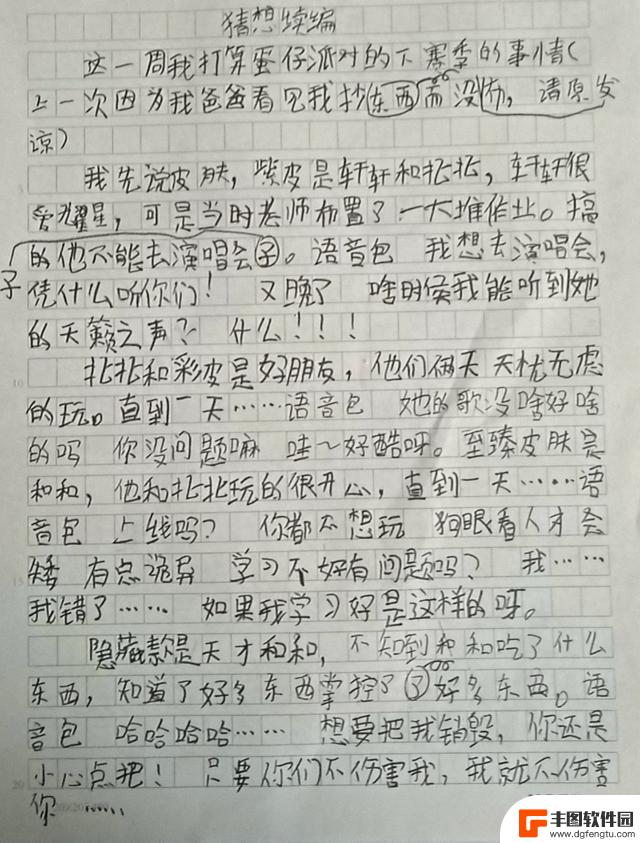 猜想续编
这一周我打算蛋仔派对的下赛季的事情(
上一次因为我爸爸看见我抄东西而没怖,请原发
谅)
我先说皮肤,紫皮是轩轩和北北,轩轩很
爱耀星,可是当时老师布置了一大堆作业。搞
的他不能去演唱会子。语音包 我想去演唱会,
凭什么听你们! 又晚了 啥时侯我能听到她
的天籁之声? 什么!!!
北北和彩皮是好朋友,他们俩天天忧无虑
的玩。直到一天……语音包 她的歌没啥好啥
的吗 你没问题嘛 哇~好酷呀。至臻皮肤是
和和,他和北北玩的很开心,直到一天……语
音包 上线吗? 你都不想玩 狗眼看人才会
矮 有点诡异 学习不好有问题吗? 我……
我错了…… 如果我学习好是这样的呀。
隐藏款是天才和和,不知到和和吃了什么
东西,知道了好多东西掌控了了好多东西。语
音包 哈哈哈哈…… 想要把我销毁,你还是
小心点把! 只要你们不伤害我,我就不伤害
你……
丰图软件园
www.dgfengtu.com